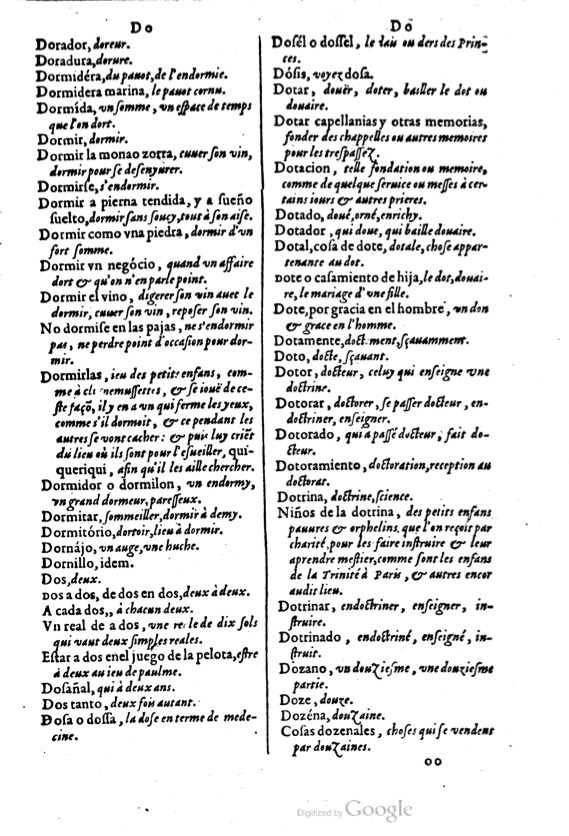 Do
Dorador, doreur.
Doradura, dorure.
Dormidéra, du pauot, de l'endormie.
Dormidera marina, le pauot cornu.
Dormída, vn somme, vn espace de temps
que l'on dort.
Dormir, dormir.
Dormir la mona o zorra, cuuer son vin,
dormir pour se desenyurer.
Dormirse, s'endormir.
Dormir a pierna tendida, y a sueño
suelto, dormir sans soucy, tout à son aise.
Dormir como vna piedra, dormir d'vn
fort somme.
Dormir vn negócio, quand vn affaire
dort & qu'on n'en parle point.
Dormir el vino, digerer son vin auec le
dormir, cuuer son vin, reposer son vin.
No dormise en las pajas, ne s'endormir
pas, ne perdre point d'occasion pour dor-
mir.
Dormirlas, ieu des petits enfans, com-
me à cli nemussettes, & se iouë de ce-
ste façõ, il y en a vn qui ferme les yeux,
comme s'il dormoit, & ce pendant les
autres se vont cacher: & puis luy criẽt
du lieu où ils sont pour l'esueiller, qui-
queriqui, afin qu'il les aille chercher.
Dormidor o dormilon, vn endormy,
vn grand dormeur, paresseux.
Dormitar, sommeiller, dormir à demy.
Dormitório, dortoir, lieu à dormir.
Dornájo, vn auge, vne huche.
Dornillo, idem.
Dos, deux.
DOS a dos, de dos en dos, deux à deux.
A cada dos,, à chacun deux.
Vn real de a dos, vne reale de dix sols
qui vaut deux simples reales.
Estar a dos en el juego de la pelota, estre
à deux au ieu de paulme.
Dosañal, qui à deux ans.
Dos tanto, deux fois autant.
Dosa o dossa, la dose en terme de mede-
cine.
Do
Dosél o dossel, le dais ou ders des Prin-
ces.
Dósis, voyez dosa.
Dotar, douër, doter, bailler le dot ou
douaire.
Dotar capellanias y otras memorias,
fonder des chappelles ou autres memoires
pour les trespassez.
Dotacion, telle fondation ou memoire,
comme de quelque seruice ou messes à cer-
tains iours & autres prieres.
Dotado, doué, orné, enrichy.
Dotador, qui doue, qui baille douaire.
Dotal, cosa de dote, dotale, chose appar-
tenante au dot.
DOte o casamiento de hija, le dot, douai-
re, le mariage d'vne fille.
Dote, por gracia en el hombre, vn don
& grace en l'homme.
Dotamente, doctement, sçauamment.
Doto, docte, sçauant.
Dotor, docteur, celuy qui enseigne vne
doctrine.
Dotorar, doctorer, se passer docteur, en-
doctriner, enseigner.
Dotorado, qui a passé docteur, fait do-
cteur.
Dotoramiento, doctoration, reception au
doctorat.
Dotrina, doctrine, science.
Niños de la dotrina, des petits enfans
pauures & orphelins, que l'on reçoit par
charité, pour les faire instruire & leur
aprendre mestier, comme sont les enfans
de la Trinité à Paris, & autres encor
audit lieu.
Dotrinar, endoctriner, enseigner, in-
struire.
Dotrinado, endoctriné, enseigné, in-
struit.
Dozano, vn douziesme, vne douziesme
partie.
Doze, douze.
Dozéna, douzaine.
Cosas dozenales, choses qui se vendent
par douzaines.
oo
Digitized by Google